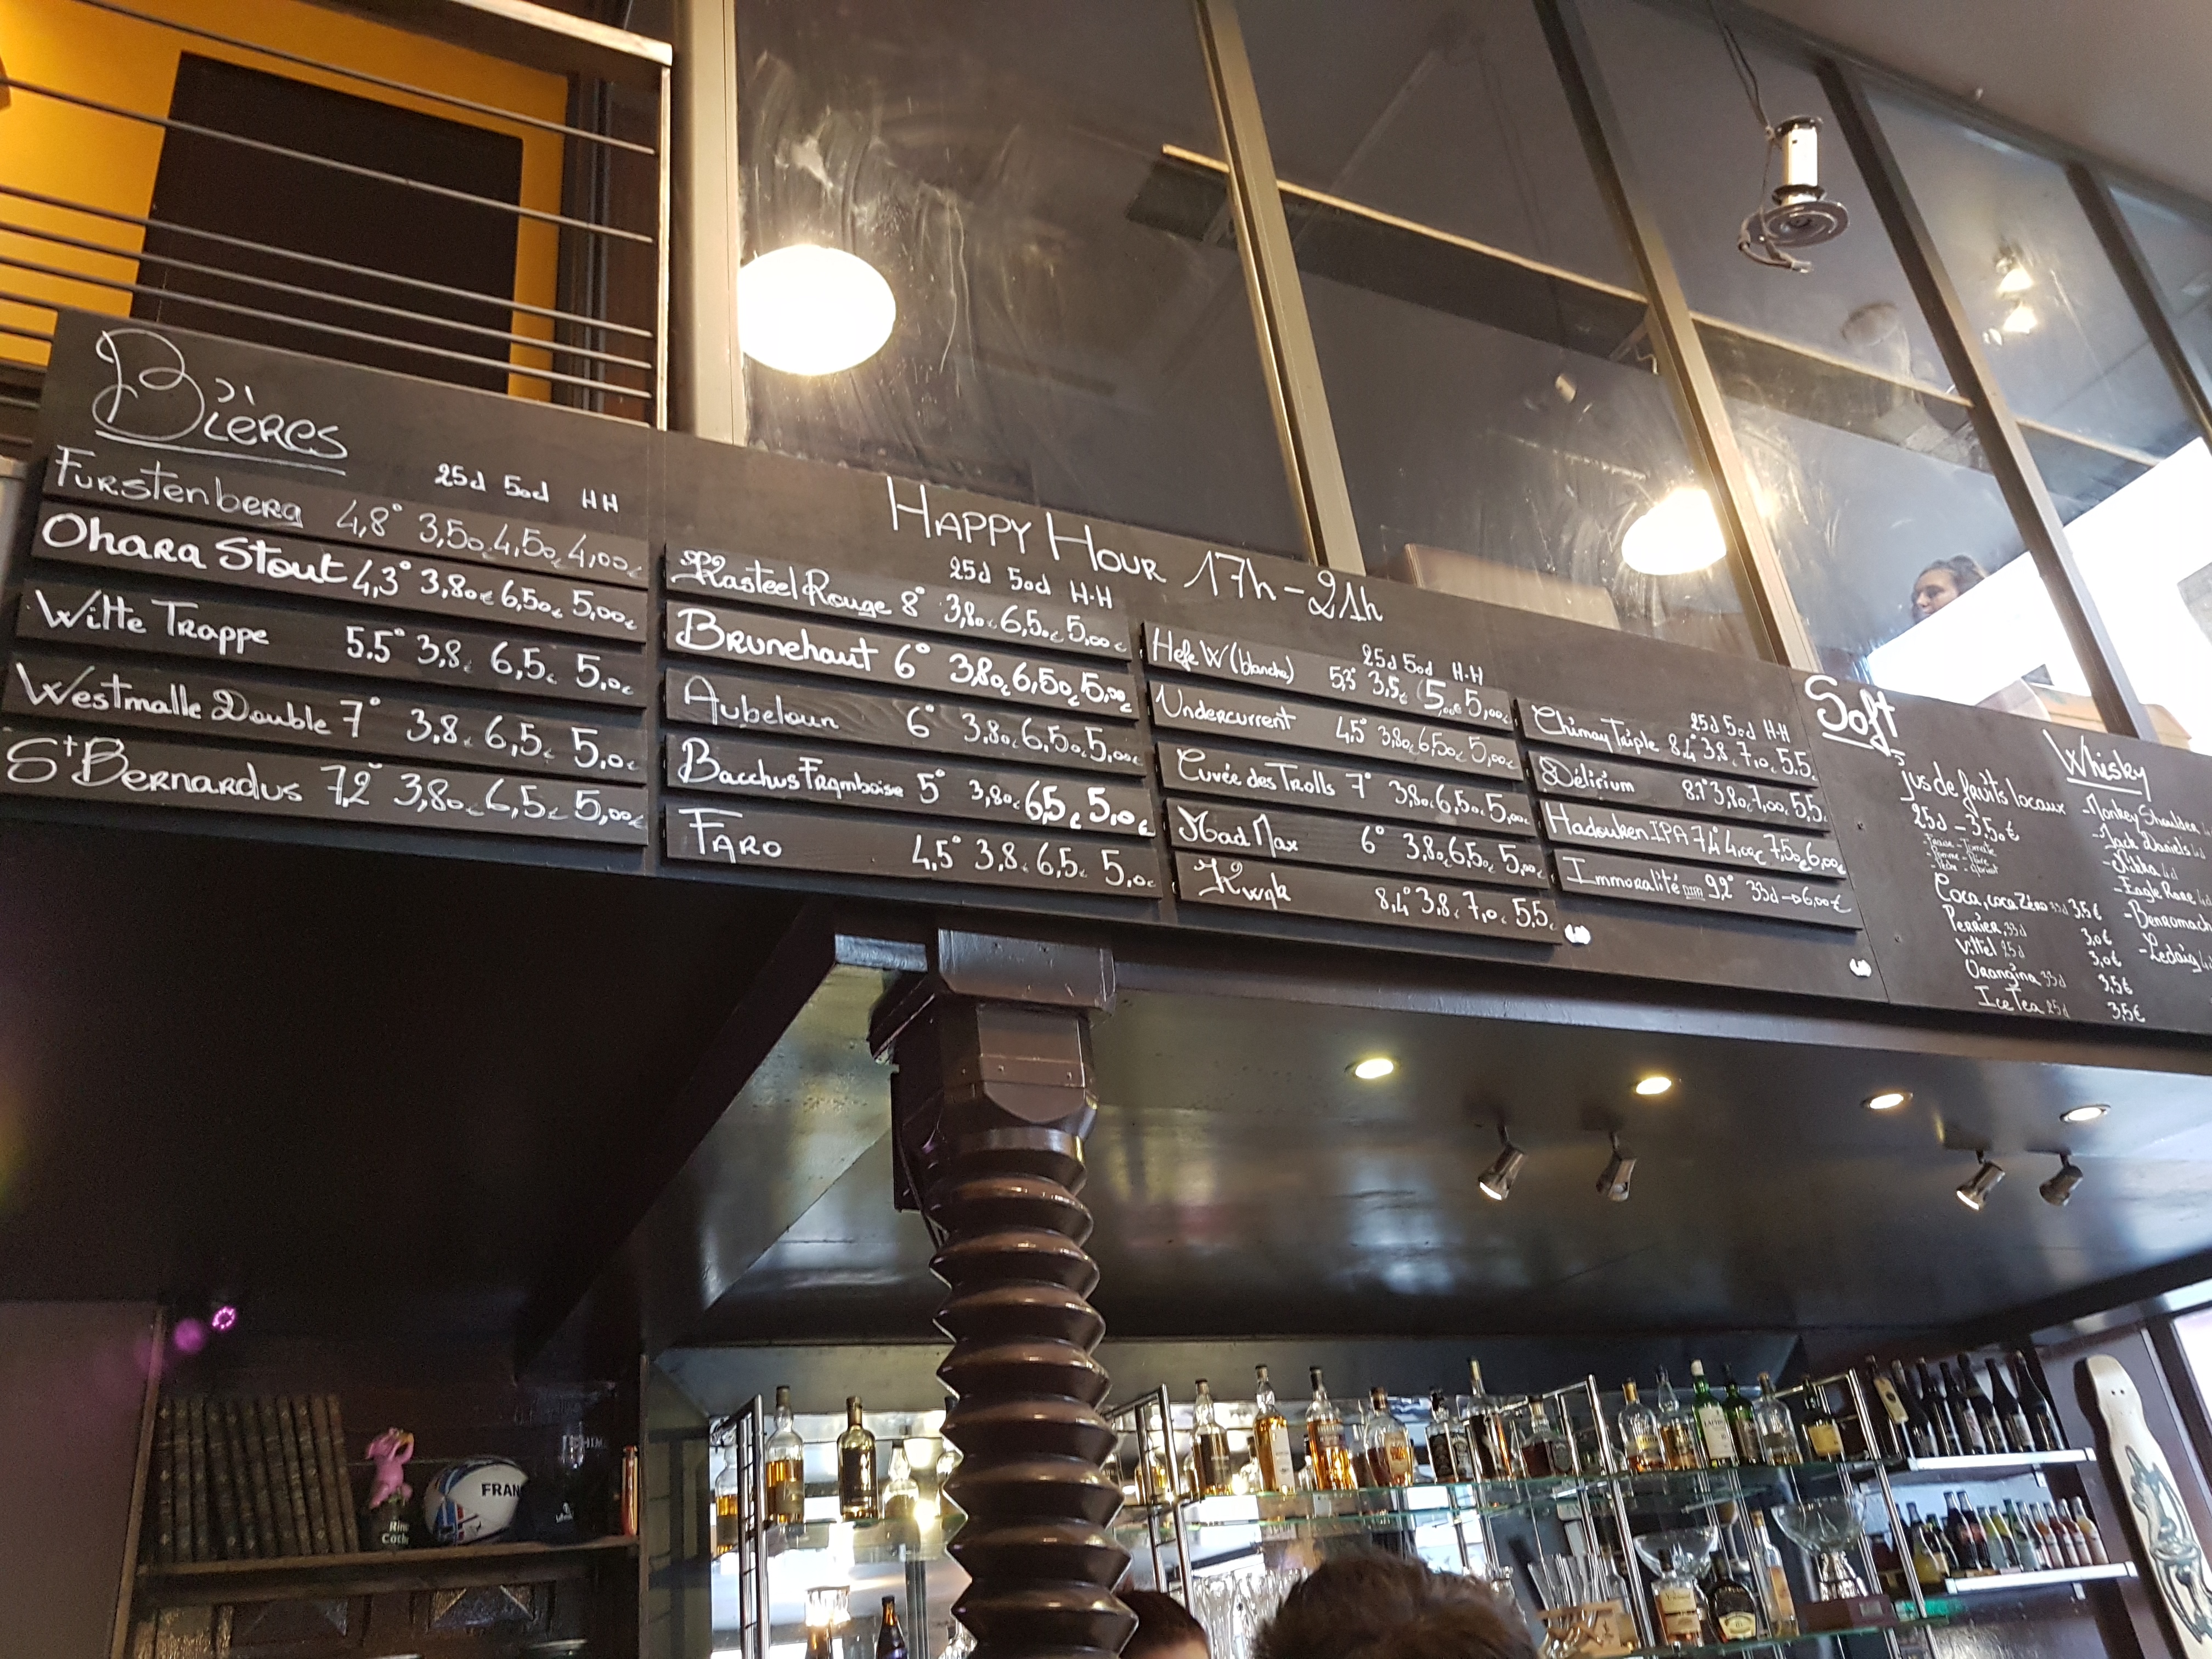 Bières
25d 50d HH
Furstenberg 4,8° 3,50€ 4,50€ 4,00€
Ohara Stout 4,3° 3,80€ 6,50€ 5,00€
Witte Trappe 5.5° 3,8€ 6,5€ 5,0€
Westmalle Double 7° 3,8€ 6,5€ 5,0€
St Bernardus 7,2° 3,80€ 6,5€ 5,00€
Happy Hour 17h-21h
25d 50d H.H
Kasteel Rouge 8° 3,80€ 6,50€ 5,00€
Brunehaut 6° 3,80€ 6,50€ 5,00€
Aubeloun 6° 3,80€ 6,50€ 5,00€
Bacchus Framboise 5° 3,80€ 6,5€ 5,0€
Faro 4,5° 3,8€ 6,5€ 5,0€
25d 50d H.H
Hefe W (blanche) 5,3° 3,5€ 5,00€ 5,00€
Undercurrent 4,5° 3,80€ 6,50€ 5,00€
Cuvée des Trolls 7° 3,80€ 6,50€ 5,00€
Mad Max 6° 3,80€ 6,50€ 5,00€
Kwak 8,4° 3,8€ 7,0€ 5,5€
25d 50d H-H
Chimay Triple 8,4° 3,8€ 7,0€ 5,5€
Délirium 8,1° 3,80€ 7,00€ 5,5€
Hadouken IPA 7,4° 4,00€ 7,50€ 6,00€
Immoralité 9,2° 33d → 6,00€
Soft
jus de fruits locaux
25d - 3,50€
Coca, coca Zéro 33d 3,5€
Perrier 33d 3,0€
Vittel 25d 3,0€
Orangina 33d 3,5€
Ice Tea 25d 3,5€
Whisky
-Monkey Shoulder
-Jack Daniels 4d
-Nikka 4d
-Eagle Rare 4d
-Benromach
-Ledaig 4d
FRAN